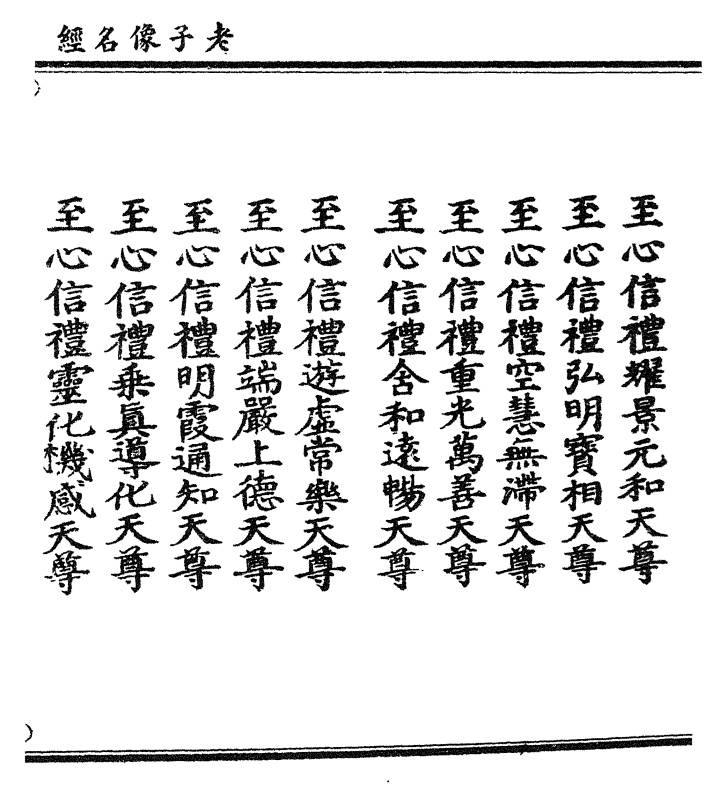 老子像名經
至心信禮耀景元和天尊
至心信禮弘明寶相天尊
至心信禮空慧無滯天尊
至心信禮重光萬善天尊
至心信禮含和遠暢天尊
至心信禮遊虛常樂天尊
至心信禮端嚴上德天尊
至心信禮明霞通知天尊
至心信禮乘真導化天尊
至心信禮靈化機感天尊